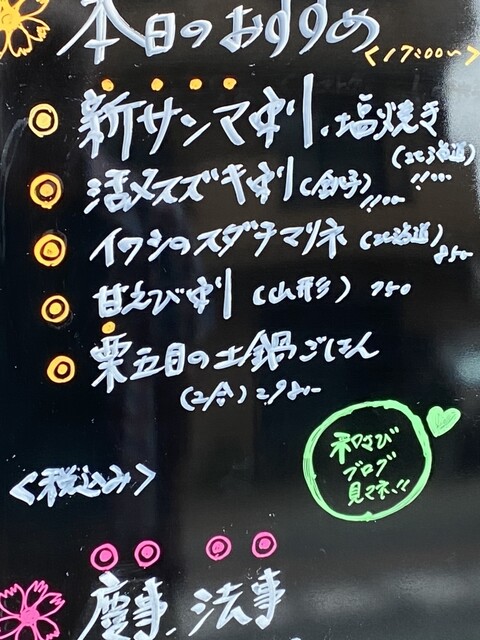 本日のおすすめ
<17:00〜>
新サンマ刺.塩焼き
(北海道)
活〆スズキ刺(銚子)
イワシのスダチマリネ(北海道)
850-
甘えび刺(山形) 750
栗五目の土鍋ごはん
(2合)
和さび
ブログ
見てネ!!
<税込み>
慶事、法事